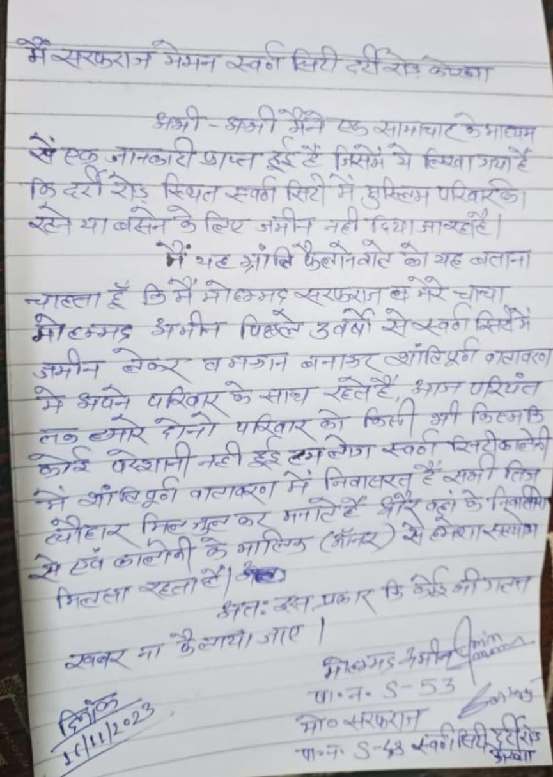 मैं सरफराज मेमन स्वर्ण सिटी दर्री रोड कोरबा
अभी - अभी मैंने एक सामाचार के माध्यम
से एक जानकारी प्राप्त हुई है जिसमें ये लिखा गया है
कि दर्री रोड़ स्थित स्वर्ण सिटी में मुस्लिम परिवार को
रहने या बसने के लिए जमीन नही दिया जा रहा है।
मैं यह भ्रांति फैलानेवाले को यह बताना
चाहता हूँ कि मैं मोहम्मद सरफराज व मेरे चाचा
मोहम्मद अमीन पिछले 3 वर्षो से स्वर्ण सिटी में
जमीन लेकर व मकान बनाकर शांतिपूर्ण वातावरण
मे अपने परिवार के साथ रहते है, आज पर्यंत
तक हमारे दोनो परिवार को किसी भी किस्म कि
कोई परेशानी नही हुई हम लोग स्वर्ण सिटी कालोनी
में शांतिपूर्ण वातावरण में निवासरत् हैं सभी तिज
त्यौहार मिल जुल कर मनाते है और वहां के निवासीयो
से एवं कालोनी के मालिक (ऑनर) से हमेशा सहयोग
मिलता रहता है।
अतः इस प्रकार कि कोई भी गलत
खबर ना फैलाया जाए।
मोहम्मद अमीन Amin
पा.न. S-53
मो० सरफराज
पा.न. S-43 स्वर्ण सिटी दर्री रोड
कोरबा
दिनांक
16/11/2023